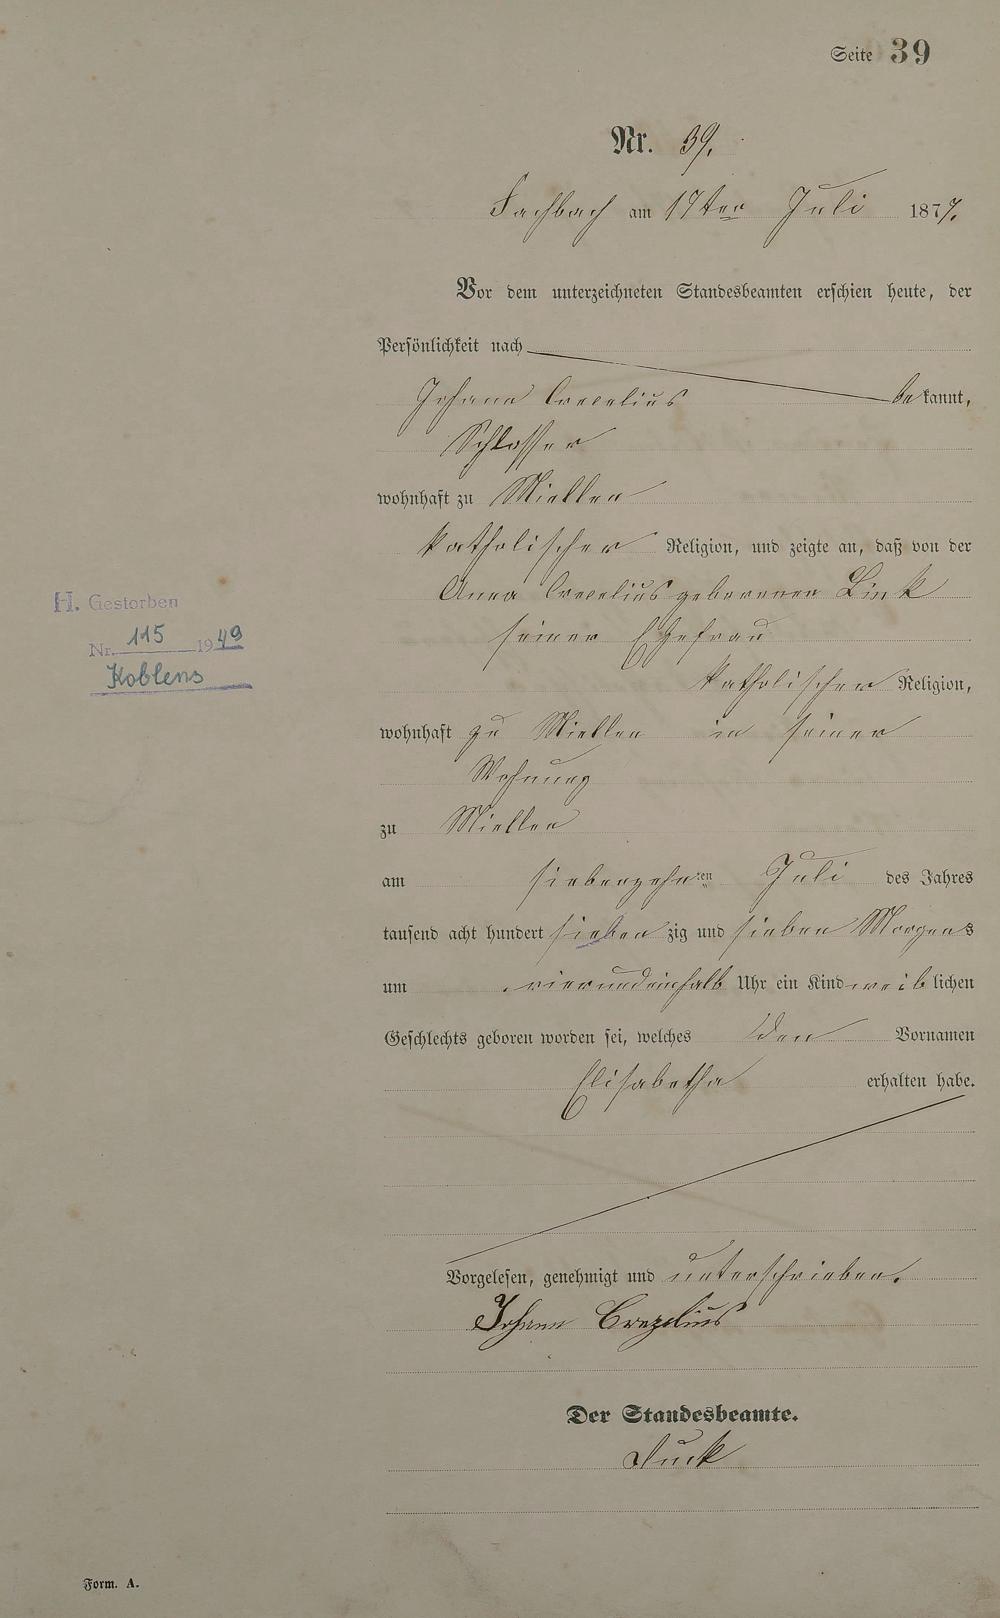 Seite 39
Nr. 39.
Fachbach am 17ten Juli 1877.
Vor dem unterzeichneten Standesbeamten erschien heute, der
Persönlichkeit nach
bekannt,
Johann Crecelius
Schlosser
wohnhaft zu Miellen
katholischer Religion, und zeigte an, daß von der
Anna Crecelius geborenen Link
seiner Ehefrau
katholischer Religion,
H. Gestorben
Nr. 115 1949
Koblenz
wohnhaft zu Miellen in seiner
Wohnung
zu Miellen
am siebenzehnten Juli des Jahres
tausend acht hundert siebenzig und sieben Morgens
um vierundeinhalb Uhr ein Kind weiblichen
Geschlechts geboren worden sei, welches den Vornamen
Elisabetha erhalten habe.
Vorgelesen, genehmigt und unterschrieben.
Johann Crezelius
Der Standesbeamte.
Form. A.